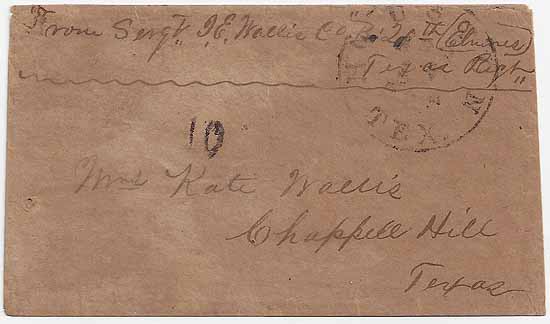 "From Sergt J. E. Wallis Co. B. 20th (Elmores)
Texas Regt"
TEX
10
Mrs Kate Wallis
Chappell Hill
Texas